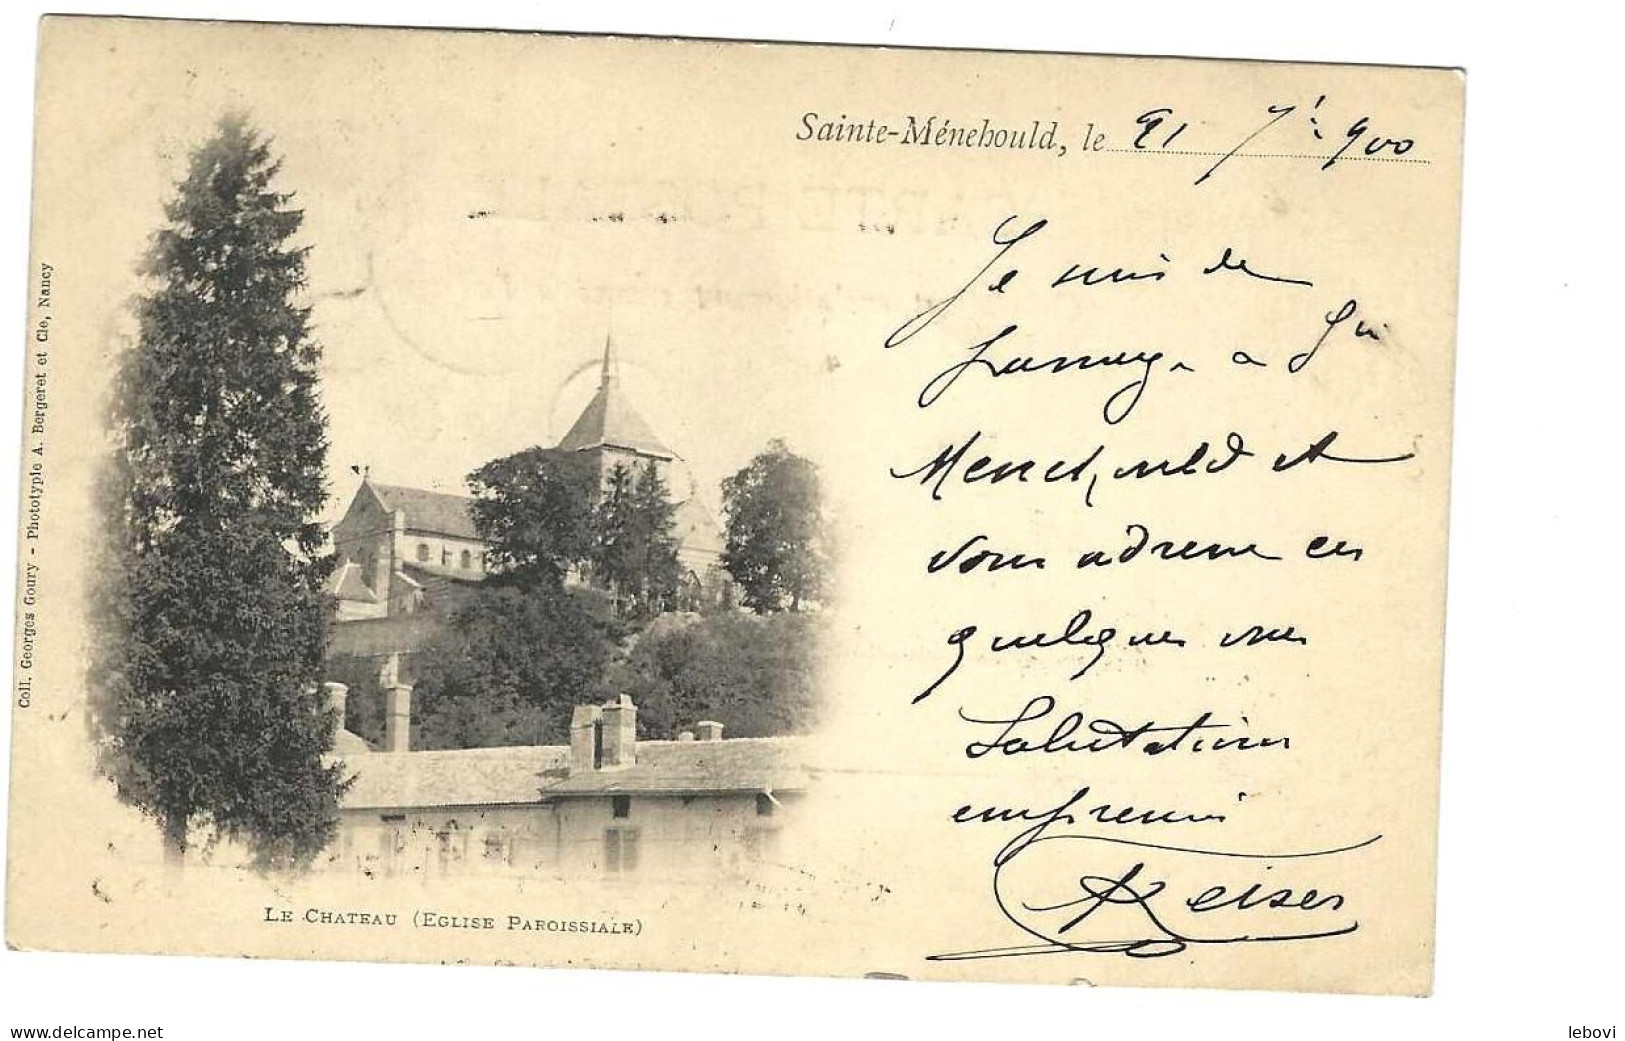 Sainte-Ménehould, le 21 7bre 900
Je suis de
passage à Ste
Menehould et
vous adresse ces
quelques vues
Salutations
empressées
Reiser
Coll. Georges Goury - Phototypie A. Bergeret et Cie, Nancy
LE CHATEAU (EGLISE PAROISSIALE)
www.delcampe.net
lebovi